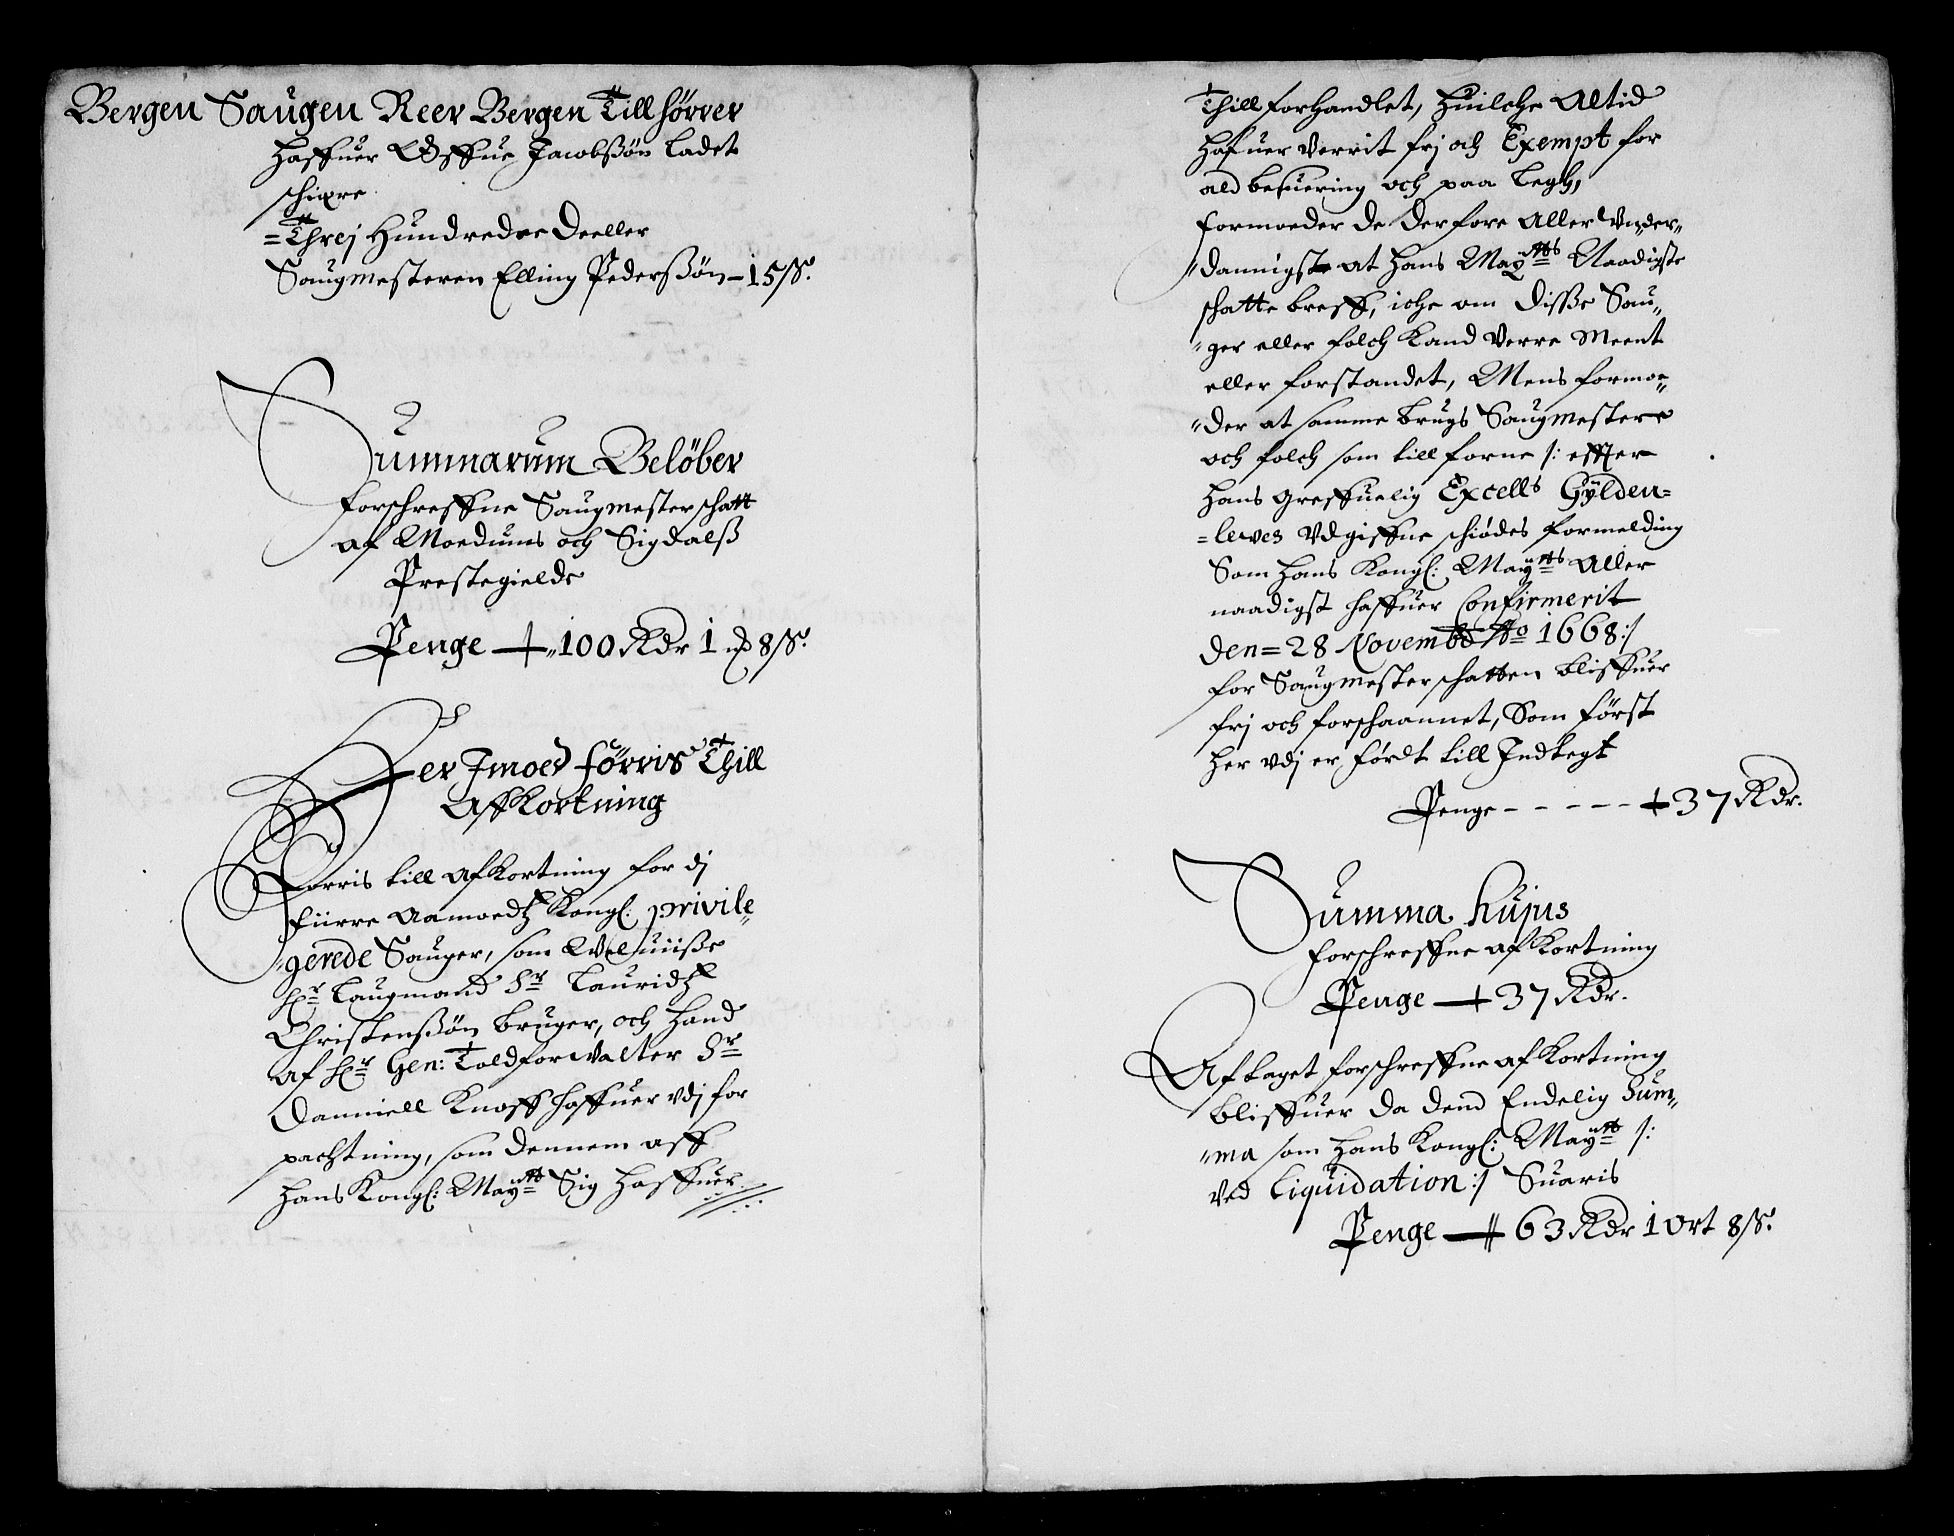 Bergen Saugen Neer Bergen Tillhörrer
Haffuer Gsffue Jacobßøn Ladet
schiere
Threj Hundrede Deeller
Saugmesteren Elling Pederßøn – 15 ß.
Summarum Belöber
forschreffne Saugmesterschatt
af Moedums och Sigdalß
Prestegield
Penge – 100 Rdr 1 ort 8 ß.
Her Imoed förris Thill
AffKortning
Førris till AfKortning for dj
fiirre Aamoedtz Kongl: privile„
„gerede Sauger, som Welwiiße
Hr Laugmand Sr Lauridtz
Christenßøn bruger, och Hand
af Hr Gen: Toldforwalter Sr
Danniell Knoff haffuer vdj for
pachtning, som dennem aff
Hans Kongl: Maytt Sig haffuer
Thill forhandlet, huilche Altid
hafuer verrit frj och Exempt for
ald besuering och paa legh,
formoeder de derfore Aller Vnder„
„dannigst at hans Maytts Naadigste
schatte breff, iche om disße Sau„
„ger eller folch kand verre Meent
eller forstandet, Mens formoe„
„der at samme brugs Saugmestere
och folch som tillforne /: effter
hans greffuelig Excells Gÿlden=
=lewes vdgiffne schiødes formelding
Som hans Kongl: Maytts Aller
naadigst haffuer Confirmerit
den = 28 Novembr Ao 1668 :/
for Saugmesterschatten bliffuer
frj och forschaannet, Som först
her vdj er førdt till Indtegt
Penge - - - - - 37 Rdr.
Summa hujus
forschreffne afKortning
Penge – 37 Rdr.
Aftaget forschreffne afKortning
bliffuer da dend Endelig Sum„
„ma som Hans Kongl: Maytt /:
ved Liquidation :/ Suaris
Penge – 63 Rdr 1 Ort 8 ß.